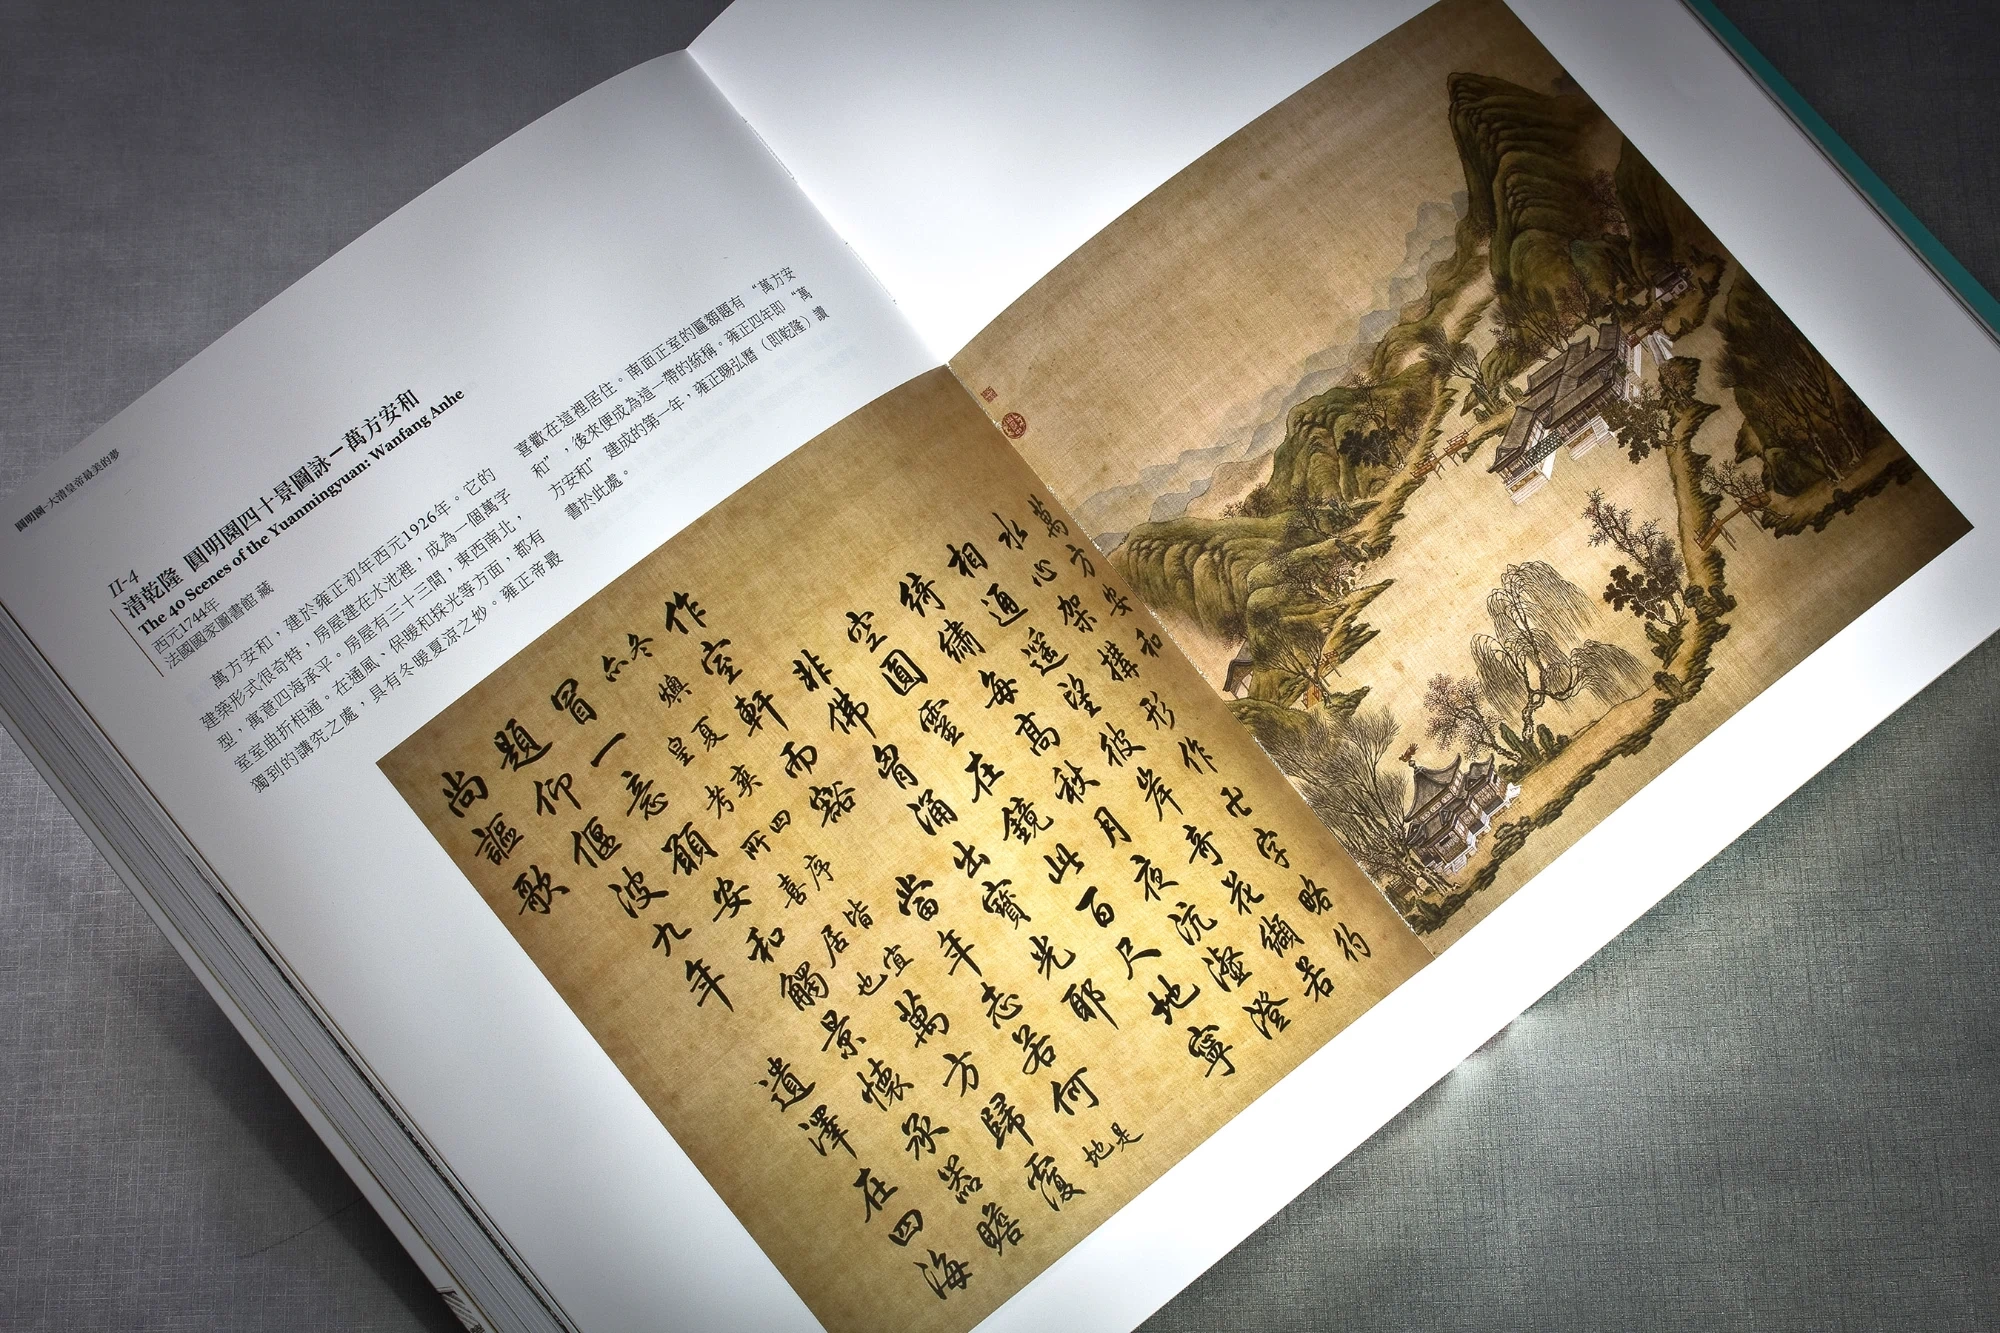 圓明園-大清皇帝最美的夢
II-4
清乾隆 圓明園四十景圖詠－萬方安和
The 40 Scenes of the Yuanmingyuan: Wanfang Anhe
西元1744年
法國國家圖書館 藏
萬方安和，建於雍正初年西元1926年。它的
建築形式很奇特，房屋建在水池裡，成為一個萬字
型，寓意四海承平。房屋有三十三間，東西南北，
室室曲折相通。在通風、保暖和採光等方面，都有
獨到的講究之處，具有冬暖夏涼之妙。雍正帝最
喜歡在這裡居住。南面正室的匾額題有“萬方安
和”，後來便成為這一帶的統稱。雍正四年即“萬
方安和”建成的第一年，雍正賜弘曆（即乾隆）讀
書於此處。
萬方安和
水心架構形作卍字略彴
相通遥望彼岸奇花纈若
綺繡每高秋月夜沆瀣澄
空圓靈在鏡此百尺地寧
非佛胷涌出寶光耶
作室軒而豁當年志若何是地
冬燠夏爽四序皆宜
皇考所喜居也萬方歸覆
冒一意願安和觸景懷承器瞻
題仰偃波九年遺澤在四海
尚謳歌